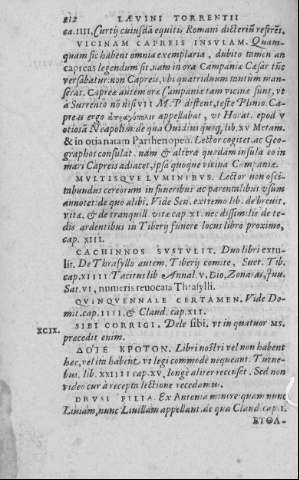 212 LÆVINI TORRENTII
ca. IIII. Curtij cuiusdā equitis Romani dicteriū referēs.
VICINAM CAPREIS INSVLAM. Quam-
quam sic habent omnia exemplaria, dubito tamen an
capreas legendum sit. nam in ora Campania Cæsar tūc
versabatur: non Capreis, vbi quatriduum tantùm man-
serat. Capreæ autem oræ Campaniæ tam vicinæ sunt, vt
à Surrento nō nisi VII M.P. distent, teste Plinio. Ca-
preas ergo appellabat, vt Horat. epod V
otiosa Neapolim: de qua Ouidius quoq; lib. XV Metam.
& in otia natam Parthenopen. Lector cogitet ac Geo-
graphos consulat. nam & altera quædam insula eo in
mari Capreis adiacet, ipsa quoque vicina Campaniæ.
MVLTISQVE LVMINIBVS. Lector non osci-
tabundus cereorum in funeribus ac parentalibus vsum
annotet: de quo alibi. Vide Sen. extremo lib. de breuit.
vitæ, & de tranquill. vitæ cap XI. nec dissimile de te-
dis ardentibus in Tiberij funere locus libro proximo,
cap. XIII.
CACHINNOS SVSTVLIT. Duo libri extu-
lit. De Thrasyllo autem, Tiberij comite, Suet. Tib.
cap. XIIII. Tacitus lib Annal. V. Dio, Zonaras, Iuu.
Sat. VI, numeris reuocata Thrasylli.
QVINQVENNALE CERTAMEN. Vide Do-
mit. cap. IIII, & Claud. cap. XII.
XCIX. SIBI CORRIGI. Dele sibi, vt in quatuor MS.
præcedit enim.
KROTON. Libri nostri vel non habent
hæc, vel ita habent, vt legi commodè nequeant. Turne-
bus, lib. XXIIII cap. XV, longè aliter recenset. Sed non
video cur à recepta lectione recedamus.
DRVSI FILIA. Ex Antonia minore quam nunc
Liuiam, nunc Liuillam appellant. de qua Claud cap. I.